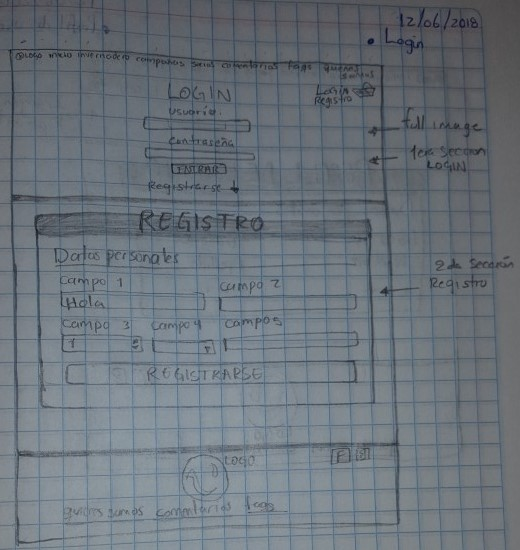 12/06/2018
• Login
@Logo inicio invernadero campañas socios comentarios faqs quienes somos
Login
Registro
LOGIN
usuario
contraseña
ENTRAR
Registrarse ↓
full image
1era Sección
LOGIN
REGISTRO
Datos personales
campo 1 campo 2
Hola
campo 3 campo 4 campo 5
1
REGISTRARSE
2da Sección
Registro
LOGO
F
quienes somos comentarios faqs